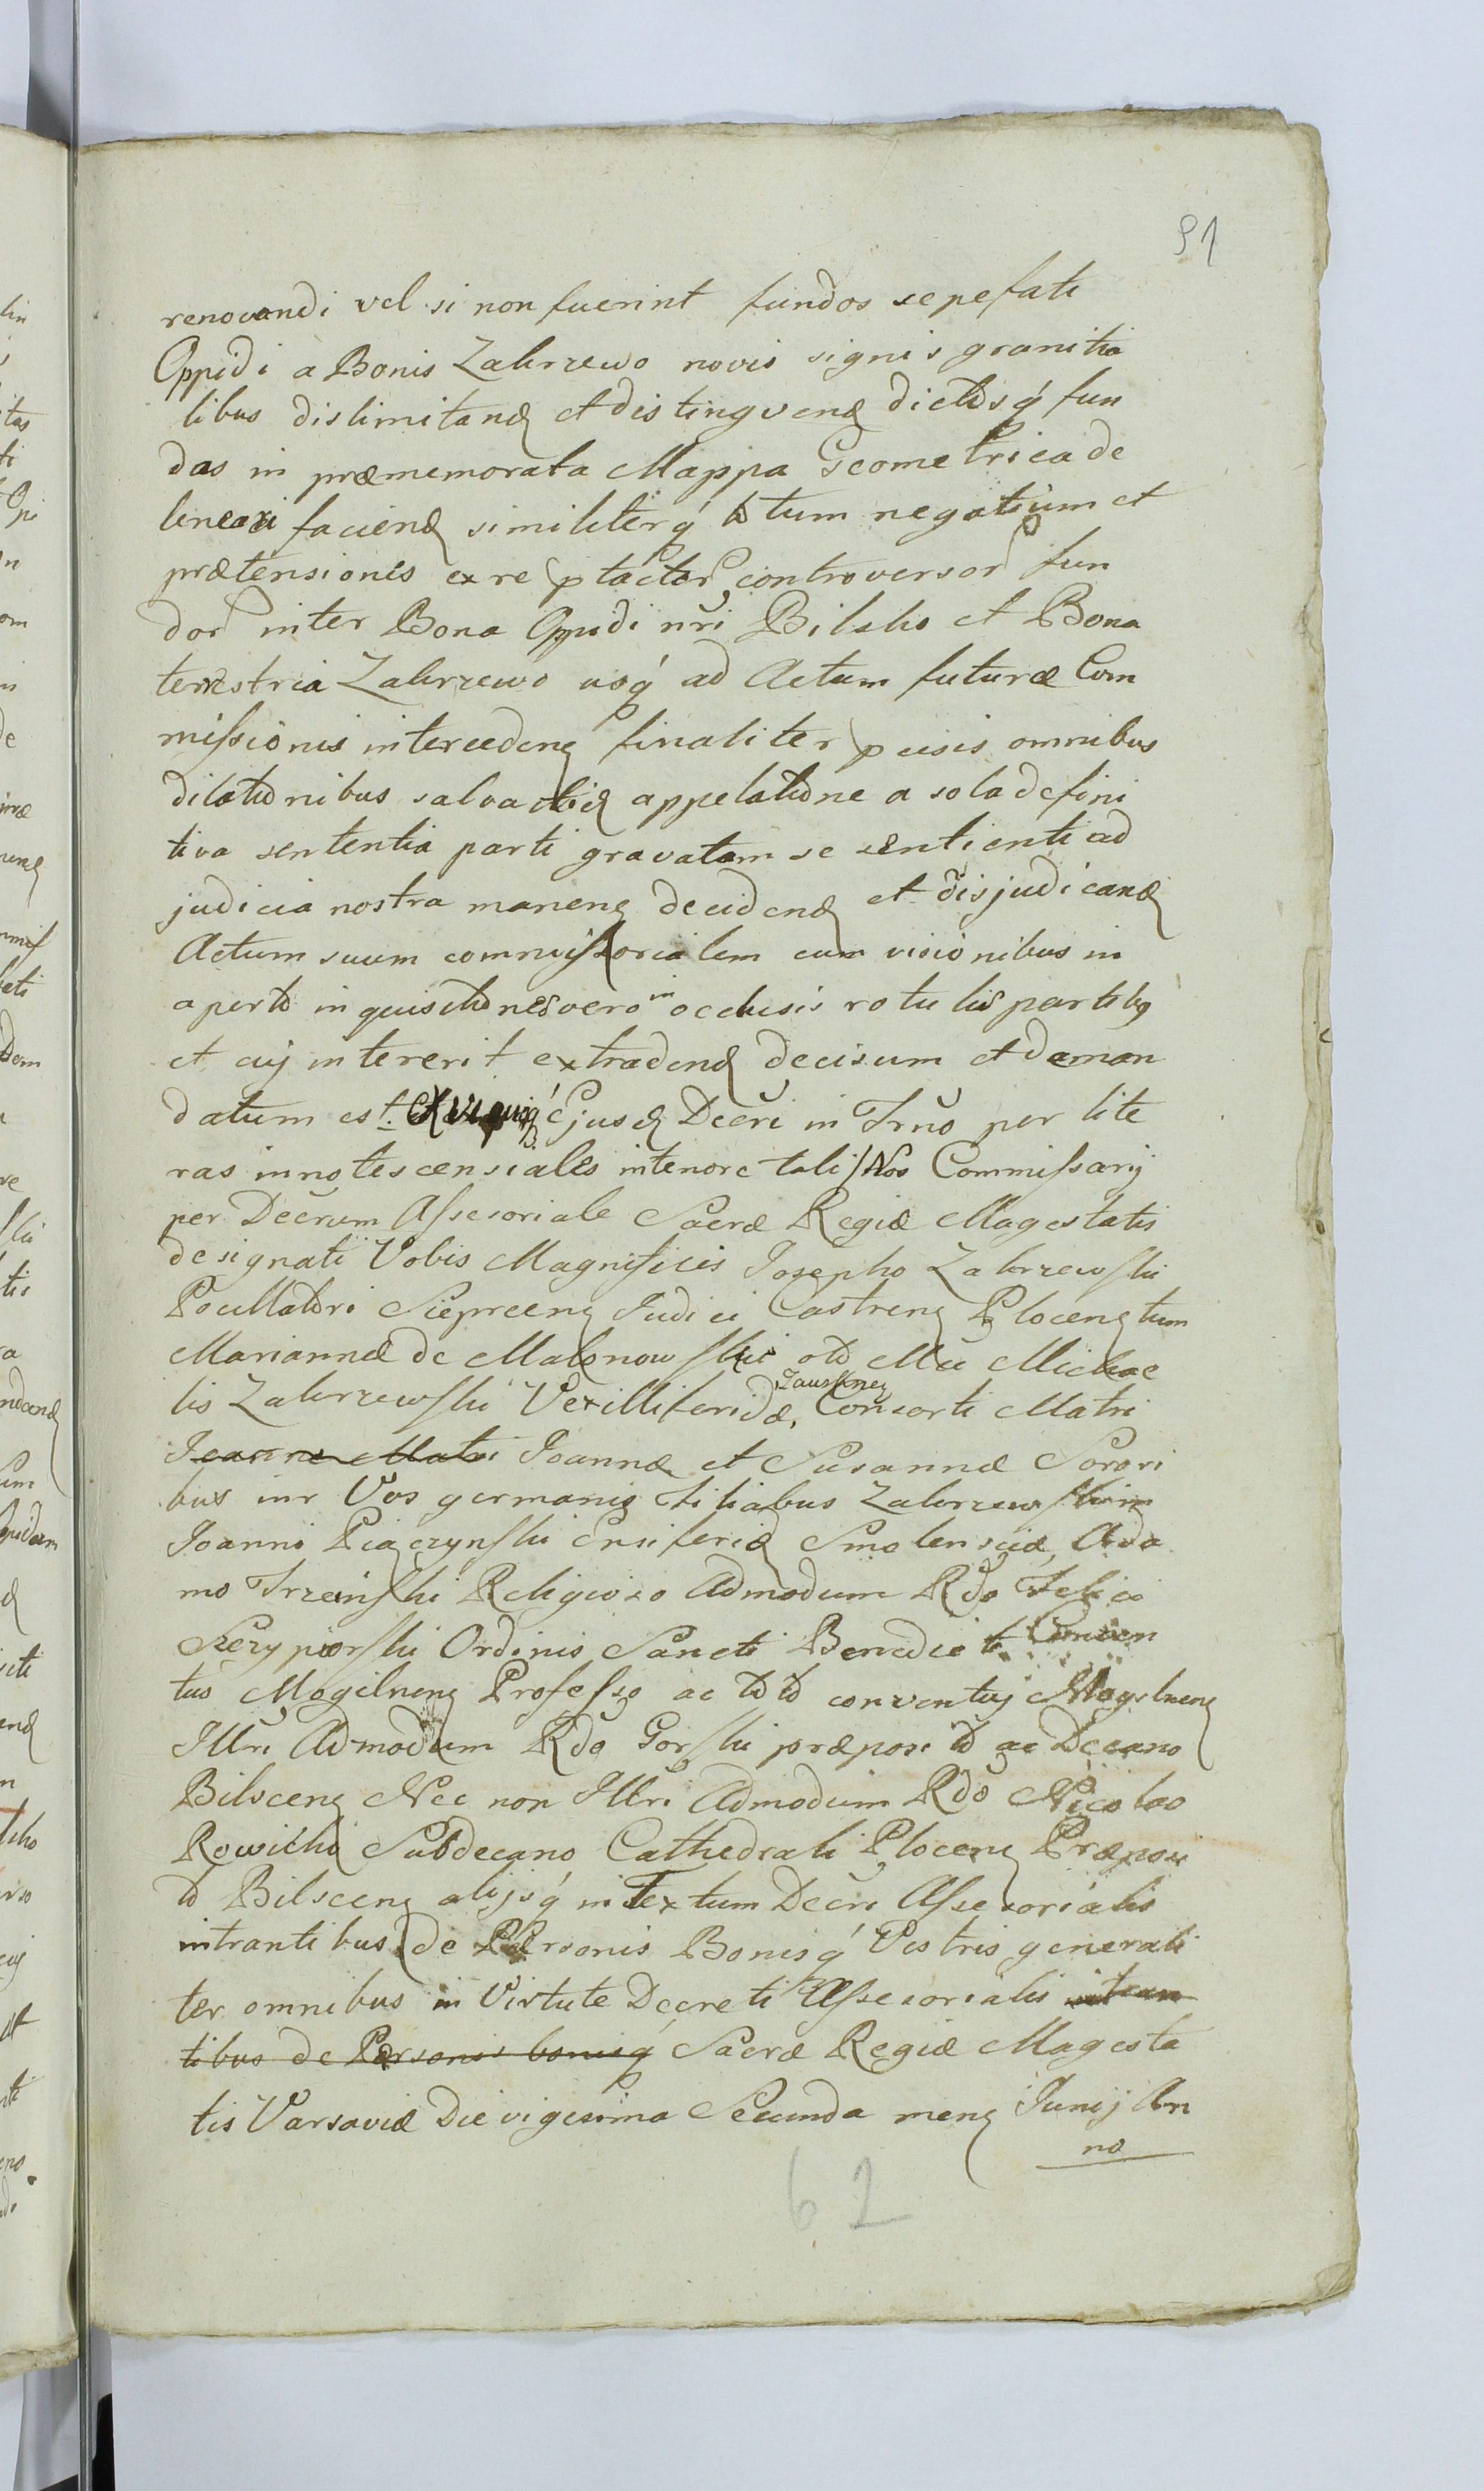 91
renovandi vel si non fuerint fundos sepefati
Oppidi a Bonis Zakrzewo novis signis granitia
libus dislimitand et distingvend dictosq́ fun
dos in præmemorata Mappa Geometrica de
lineari faciend similiterq́ totum negotium et
prætensiones ex re ptactor controversor fun
dor inter Bona Oppidi nr̃i Bilsko et Bona
terrestria Zakrzewo usq́ ad Actum futuræ Com
missionis interceden finaliter pcisis omnibus
dilationibus salva appelatione a sola defini
tiva sententia parti gravatam se sentienti ad
judicia nostra manen decidend et disjudicand
Actum suum commissorialem cum visionibus in
aperto inquisitiones vero in occlusis rotulis partibg
et cuj intererit extradend decisum et deman
datum est. Ejusd Decri in Trn̄o per lite
ras innotescensiales in tenore tali Nos Commissarij
per Decrum Assesoriale Sacræ Regiæ Magestatis
designati Vobis Magnificis Josepho Zakrzewski
Pocillatori Sieprcen Judici Castren Plocen tum
Mariannæ de Malonowskie oto Mci Michae
lis Zakrzewski Vexilliferidæ, Zauskrnen Consorti Matri
Joanne Matri Joannæ et Susannæ Sorori
bus inr Vos germanis filiabus Zakrzewskim
Joanni Piączynski Ensiferid Smolensciæ, Ada
mo Trzcinski Religioso Admodum Rdo Felici
Skrzypiorski Ordinis Sancti Benedicti Conven
tus Mogilnen Professo ac toto conventuj Mogilnen
Illri Admodum Rdo Gorski præposito ac Decano
Bilscen Nec non Illri Admodum Rdo Nicolao
Rowicki Subdecano Cathedrali Plocen Præposi
to Bilscen alijsq́ in Textum Decri Assesorialis
intrantibus de Personis Bonisq́ Vestris generali
ter omnibus in Virtute Decreti Assesorialis intran
tibus de Personis bonisq́ Sacræ Regiæ Magesta
tis Varsaviæ Die vigesima Secunda men Junij An
no
62